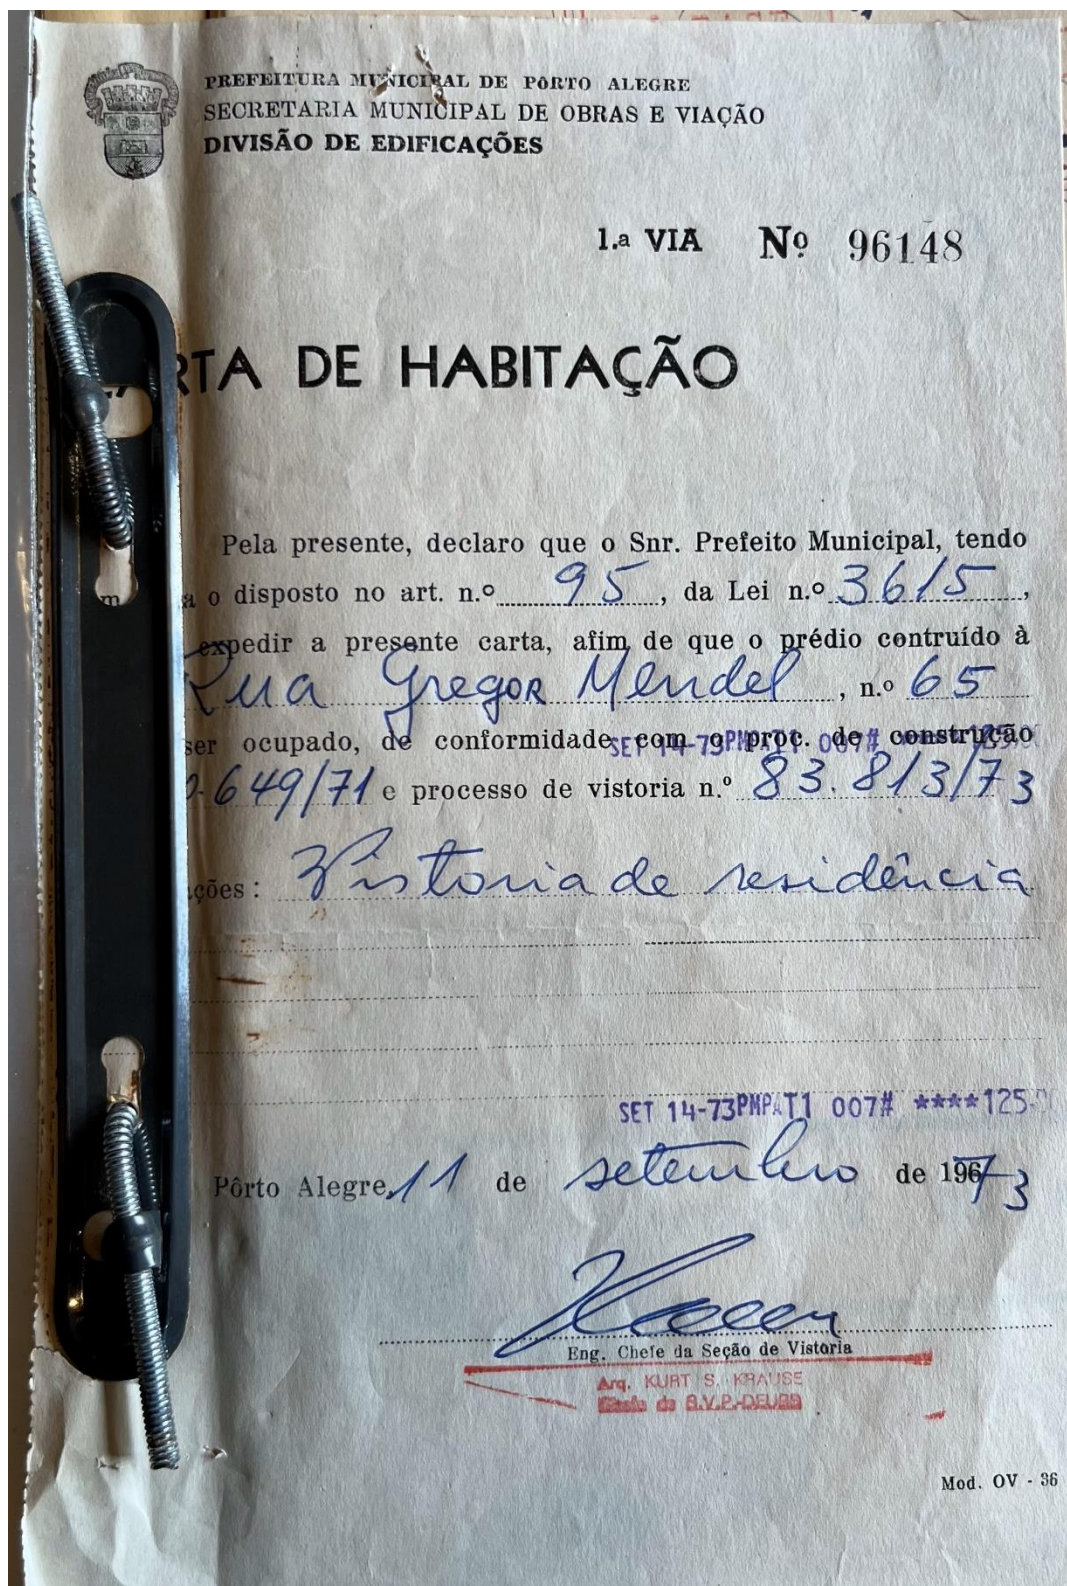 PREFEITURA MUNICIPAL DE PÔRTO ALEGRE
SECRETARIA MUNICIPAL DE OBRAS E VIAÇÃO
DIVISÃO DE EDIFICAÇÕES
1.a VIA Nº 96148
RTA DE HABITAÇÃO
Pela presente, declaro que o Snr. Prefeito Municipal, tendo
m a o disposto no art. n.º 95, da Lei n.º 3615,
expedir a presente carta, afim de que o prédio contruído à
Rua Gregor Mendel, n.º 65
ser ocupado, de conformidade com o proc. de construção
SET 14-73PMPAT1 007#
.649/71 e processo de vistoria n.º 83.813/73
ções: Vistoria de residência
SET 14-73PMPAT1 007# ****125
Pôrto Alegre, 11 de setembro de 19673
Eng. Chefe da Seção de Vistoria
Arq. KURT S. KRAUSE
Mod. OV - 36